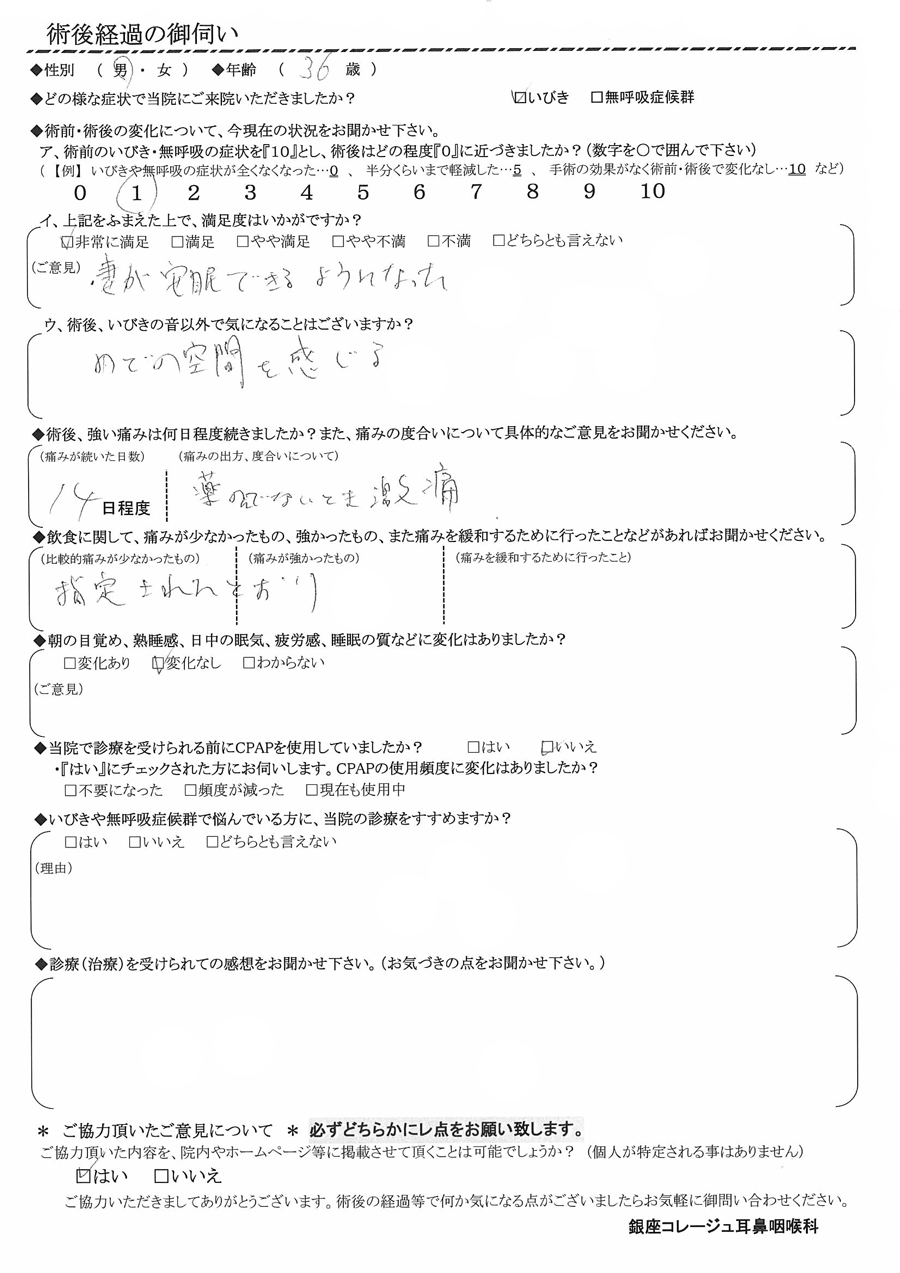 術後経過の御伺い
◆性別 (男・女) ◆年齢 (36歳)
◆どの様な症状で当院にご来院いただきましたか? ☑いびき □無呼吸症候群
◆術前・術後の変化について、今現在の状況をお聞かせ下さい。
ア、術前のいびき・無呼吸の症状を『10』とし、術後はどの程度『0』に近づきましたか?(数字を○で囲んで下さい)
(【例】いびきや無呼吸の症状が全くなくなった…0 、 半分くらいまで軽減した…5 、 手術の効果がなく術前・術後で変化なし…10 など)
0 1 2 3 4 5 6 7 8 9 10
イ、上記をふまえた上で、満足度はいかがですか?
☑非常に満足 □満足 □やや満足 □やや不満 □不満 □どちらとも言えない
(ご意見) 妻が安眠できるようになった
ウ、術後、いびきの音以外で気になることはございますか?
めでの空間を感じる
◆術後、強い痛みは何日程度続きましたか?また、痛みの度合いについて具体的なご意見をお聞かせください。
(痛みが続いた日数) (痛みの出方、度合いについて)
14日程度 薬のんでないとき激痛
◆飲食に関して、痛みが少なかったもの、強かったもの、また痛みを緩和するために行ったことなどがあればお聞かせください。
(比較的痛みが少なかったもの) (痛みが強かったもの) (痛みを緩和するために行ったこと)
指定されたとおり
◆朝の目覚め、熟睡感、日中の眠気、疲労感、睡眠の質などに変化はありましたか?
□変化あり ☑変化なし □わからない
(ご意見)
◆当院で診療を受けられる前にCPAPを使用していましたか? □はい ☑いいえ
・『はい』にチェックされた方にお伺いします。CPAPの使用頻度に変化はありましたか?
□不要になった □頻度が減った □現在も使用中
◆いびきや無呼吸症候群で悩んでいる方に、当院の診療をすすめますか?
□はい □いいえ □どちらとも言えない
(理由)
◆診療(治療)を受けられての感想をお聞かせ下さい。(お気づきの点をお聞かせ下さい。)
* ご協力頂いたご意見について * 必ずどちらかにレ点をお願い致します。
ご協力頂いた内容を、院内やホームページ等に掲載させて頂くことは可能でしょうか? (個人が特定される事はありません)
☑はい □いいえ
ご協力いただきましてありがとうございます。術後の経過等で何か気になる点がございましたらお気軽に御問い合わせください。
銀座コレージュ耳鼻咽喉科